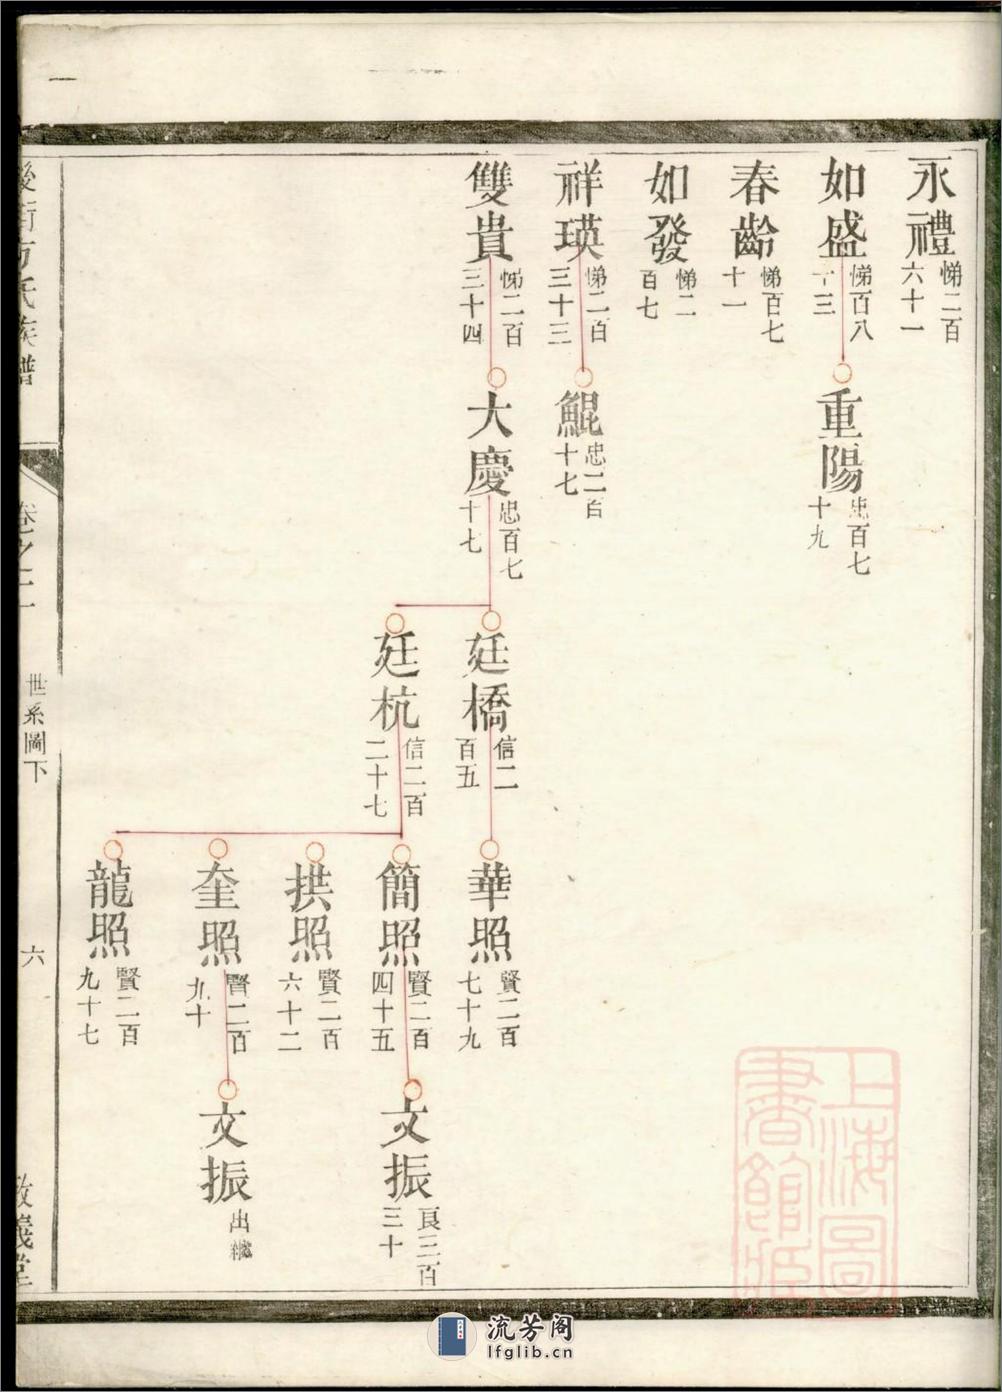 永禮
悌二百
六十一
如盛
悌百八
十三
春齡
悌百七
十一
如發
悌二
百七
祥瑛
悌二百
三十三
雙貴
悌二百
三十四
重陽
忠百七
十九
鯤
忠二百
十七
大慶
忠百七
十七
廷橋
信二
百五
廷杭
信二百
二十七
華照
賢二百
七十九
簡照
賢二百
四十五
拱照
賢二百
六十二
奎照
賢二百
九十
龍照
賢二百
九十七
文振
良三百
三十
文振
出繼
方氏族譜
卷之二
世系圖下
六
義堂
上海圖
書館藏
流芳阁
lfglib.cn